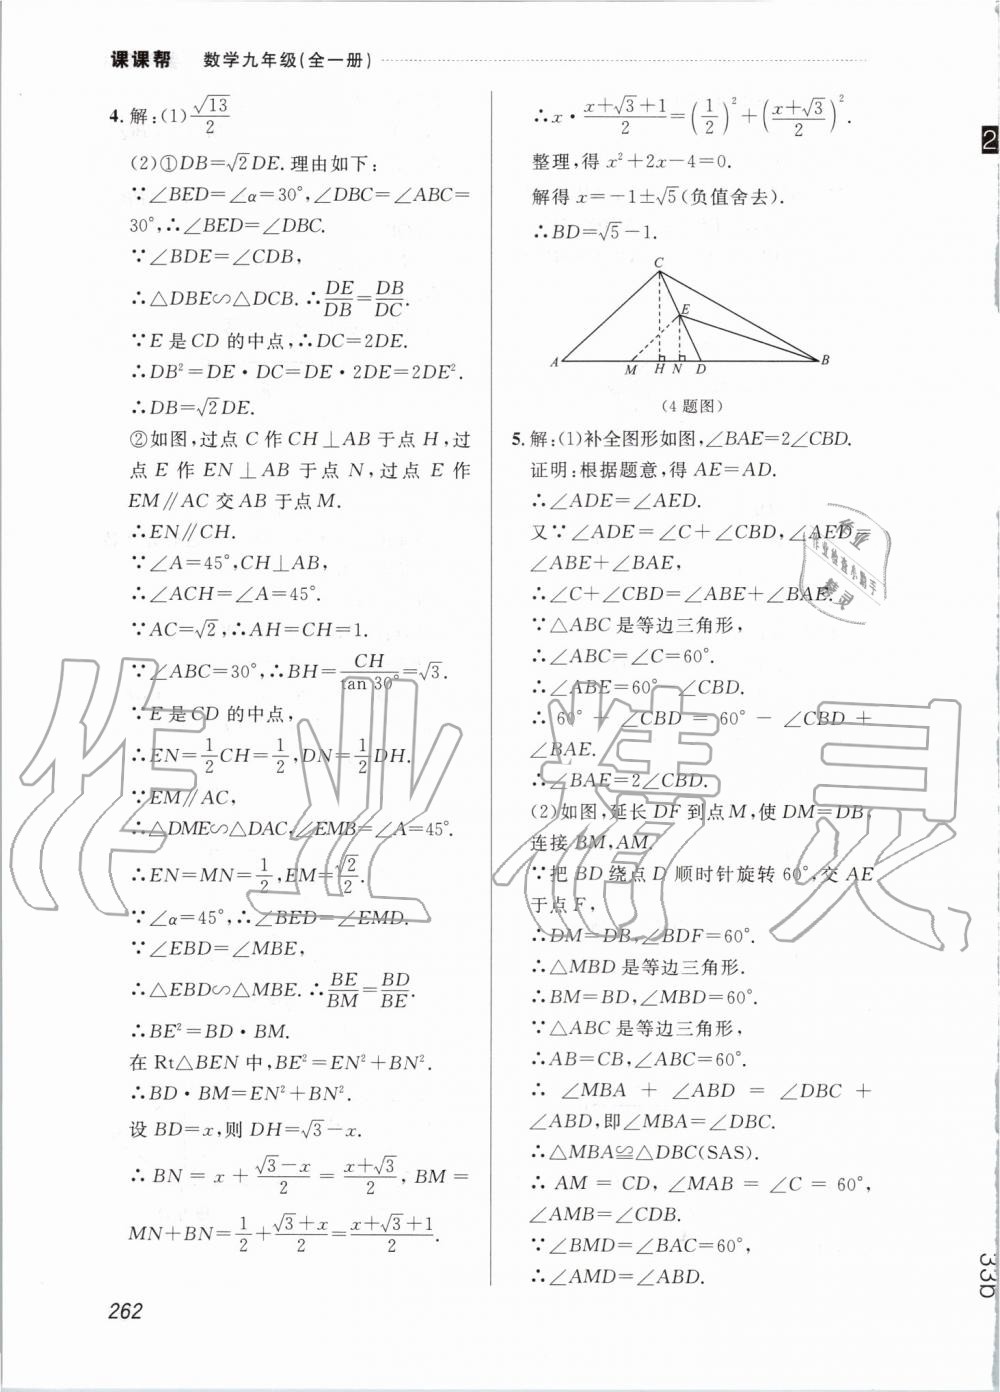 课课帮 数学九年级(全一册)
4. 解:(1)√13/2
(2)①DB=√2DE.理由如下:
∵∠BED=∠α=30°,∠DBC=∠ABC=
30°,∴∠BED=∠DBC.
∵∠BDE=∠CDB,
∴△DBE∽△DCB.∴DE/DB=DB/DC.
∵E是CD的中点,∴DC=2DE.
∴DB²=DE·DC=DE·2DE=2DE².
∴DB=√2DE.
②如图,过点C作CH⊥AB于点H,过
点E作EN⊥AB于点N,过点E作
EM∥AC交AB于点M.
∴EN∥CH.
∵∠A=45°,CH⊥AB,
∴∠ACH=∠A=45°.
∵AC=√2,∴AH=CH=1.
∵∠ABC=30°,∴BH=CH/tan 30°=√3.
∵E是CD的中点,
∴EN=1/2CH=1/2,DN=1/2DH.
∵EM∥AC,
∴△DME∽△DAC,∠EMB=∠A=45°.
∴EN=MN=1/2,EM=√2/2.
∵∠α=45°,∴∠BED=∠EMD.
∵∠EBD=∠MBE,
∴△EBD∽△MBE.∴BE/BM=BD/BE.
∴BE²=BD·BM.
在Rt△BEN中,BE²=EN²+BN².
∴BD·BM=EN²+BN².
设BD=x,则DH=√3-x.
∴BN=x+(√3-x)/2=(x+√3)/2,BM=
MN+BN=1/2+(√3+x)/2=(x+√3+1)/2.
262
∴x·(x+√3+1)/2=(1/2)²+((x+√3)/2)².
整理,得x²+2x-4=0.
解得x=-1±√5(负值舍去).
∴BD=√5-1.
C
E
A M H N D B
(4题图)
5. 解:(1)补全图形如图,∠BAE=2∠CBD.
证明:根据题意,得AE=AD.
∴∠ADE=∠AED.
又∵∠ADE=∠C+∠CBD,∠AED=
∠ABE+∠BAE,
∴∠C+∠CBD=∠ABE+∠BAE.
∵△ABC是等边三角形,
∴∠ABC=∠C=60°.
∴∠ABE=60°-∠CBD.
∴60°+∠CBD=60°-∠CBD+
∠BAE.
∴∠BAE=2∠CBD.
(2)如图,延长DF到点M,使DM=DB,
连接BM,AM.
∵把BD绕点D顺时针旋转60°,交AE
于点F,
∴DM=DB,∠BDF=60°.
∴△MBD是等边三角形.
∴BM=BD,∠MBD=60°.
∵△ABC是等边三角形,
∴AB=CB,∠ABC=60°.
∴∠MBA+∠ABD=∠DBC+
∠ABD,即∠MBA=∠DBC.
∴△MBA≌△DBC(SAS).
∴AM=CD,∠MAB=∠C=60°,
∠AMB=∠CDB.
∵∠BMD=∠BAC=60°,
∴∠AMD=∠ABD.
2
33b
作业精灵
作业
作业检查小助手
精灵